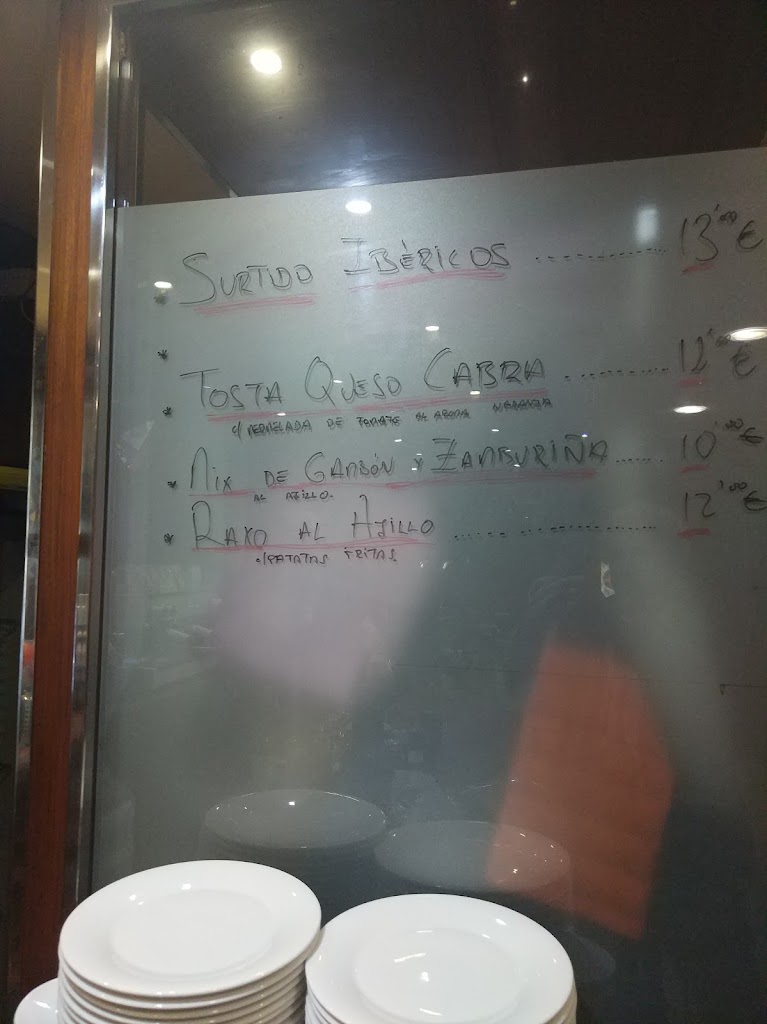 * SURTIDO IBÉRICOS .............. 13'00 €
*
* TOSTA QUESO CABRA ........... 12'00 €
c/ MERMELADA DE TOMATE NARANJA
* MIX DE GAMBÓN Y ZAMBURIÑA ...... 10'00 €
AL AJILLO.
* RAXO AL AJILLO ................... 12'00 €
c/PATATAS FRITAS